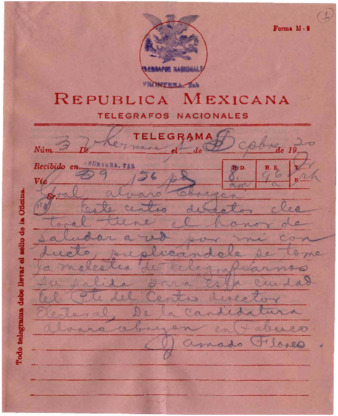 Forma M-2
TELEGRAFOS NACIONALES
FRONTERA, TAB
REPUBLICA MEXICANA
TELEGRAFOS NACIONALES
TELEGRAMA
Núm. 3 De Vhermosa el de Spbre de 19 20
Recibido en FRONTERA, TAB.
Vía 39
Gral Alvaro Obregon
Este centro director elec
toral tiene el honor de
saludar a ud por mi con
ducto, suplicandole se tome
la molestia de telegrafiarnos
su salida para esta ciudad
el Pte del Centro director
Electoral De la candidatura
Alvaro Obregon en Tabasco.
Amado Flores
Todo telegrama debe llevar el sello de la Oficina.